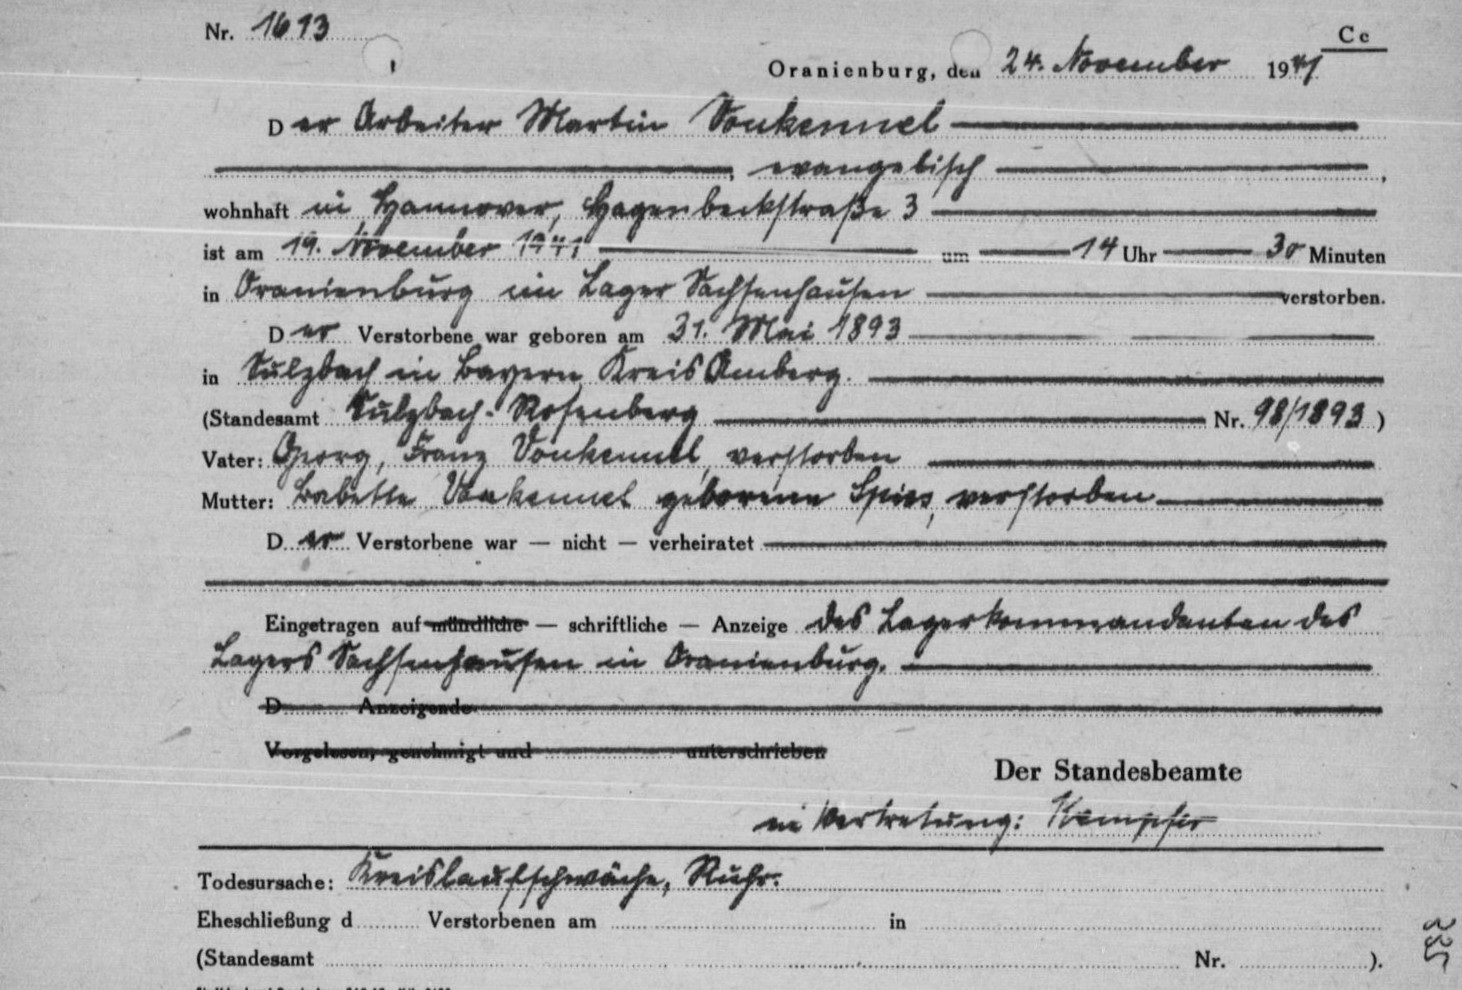 Nr. 1613
Cc
Oranienburg, den 24. November 1941
Der Arbeiter Martin Vonkennel
, evangelisch ,
wohnhaft in Hannover, Hagenbeckstraße 3
ist am 19. November 1941 um 14 Uhr 30 Minuten
in Oranienburg im Lager Sachsenhausen verstorben.
Der Verstorbene war geboren am 31. Mai 1893
in Sulzbach in Bayern Kreis Amberg.
(Standesamt Sulzbach-Rosenberg Nr. 98/1893)
Vater: Georg, Franz Vonkennel, verstorben
Mutter: Babette Vonkennel geborene Spies, verstorben
Der Verstorbene war — nicht — verheiratet
Eingetragen auf mündliche — schriftliche — Anzeige des Lagerkommandanten des
Lagers Sachsenhausen in Oranienburg.
D Anzeigende
Vorgelesen, genehmigt und unterschrieben
Der Standesbeamte
in Vertretung:
Todesursache: Kreislaufschwäche, Ruhr.
Eheschließung d Verstorbenen am in
(Standesamt Nr. ).